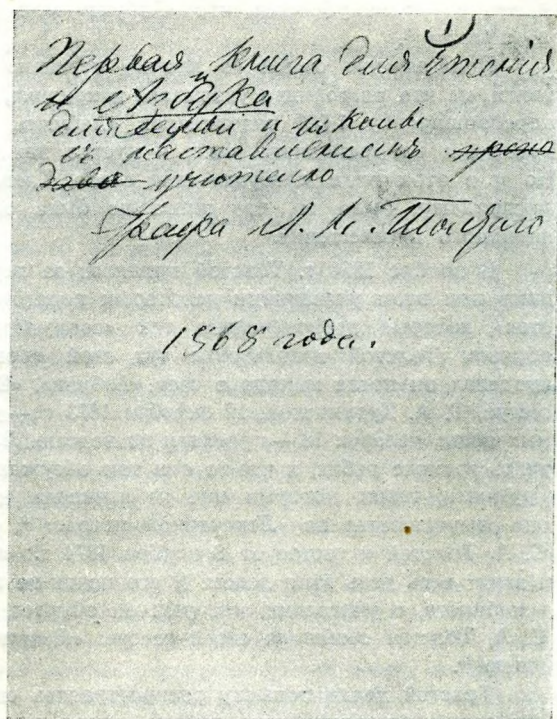 1)
Первая книга для чтения
и Азбука
для семьи и школы
съ наставлениемъ препо
дава учителю
Графа Л. Н. Толстого
1868 года.